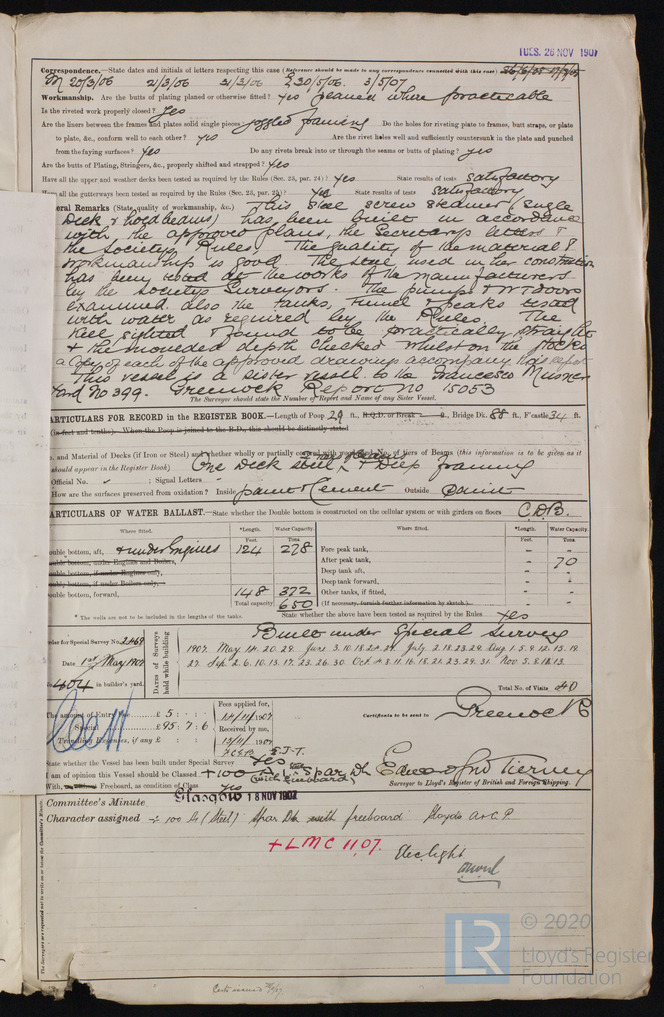 TUES. 26 NOV 1907
Correspondence.—State dates and initials of letters respecting this case (Reference should be made in any correspondence connected with this case)
M 20/3/06 21/3/06 21/3/06 E 20/5/06. 3/5/07
Workmanship. Are the butts of plating planed or otherwise fitted? Yes planed where practicable
Is the riveted work properly closed? Yes
Are the liners between the frames and plates solid single pieces joggled framing Do the holes for riveting plate to frames, butt straps, or plate
to plate, &c., conform well to each other? Yes Are the rivet holes well and sufficiently countersunk in the plate and punched
from the faying surfaces? Yes Do any rivets break into or through the seams or butts of plating? yes
Are the butts of Plating, Stringers, &c., properly shifted and strapped? Yes
Have all the upper and weather decks been tested as required by the Rules (Sec. 23, par. 24)? Yes State results of tests satisfactory
all the gutterways been tested as required by the Rules (Sec. 23, par. 25)? Yes State results of tests satisfactory
eral Remarks (State quality of workmanship, &c.) This steel screw steamer (single
Deck & hold beams) has been built in accordance
with the approved plans, the Secretary's letters &
the Society's Rules. The quality of the material &
workmanship is good. The steel used in her construction
has been tested at the works of the manufacturers
by the Society's Surveyors. The pumps & WT doors
examined also the tanks, tunnel & peaks tested
with water as required by the Rules. The
Keel sighted & found to be practically straight
& the moulded depth checked whilst on the stocks
a copy of each of the approved drawings accompany this report
This vessel is a sister vessel to the Francesco
Yard No 399. Greenock Report No 15053
The Surveyor should state the Number of Report and Name of any Sister Vessel.
ARTICULARS FOR RECORD in the REGISTER BOOK.—Length of Poop 29 ft., R.Q.D. or Break ft., Bridge Dk. 88 ft., F'castle 34 ft.
(in feet and tenths). When the Poop is joined to the B.D., this should be distinctly stated
o. and Material of Decks (if Iron or Steel) and whether wholly or partially covered with wood and No. of tiers of Beams (this information is to be given as it
should appear in the Register Book) One Deck steel, 2 tiers of Beams & Deep framing
Official No. ; Signal Letters
How are the surfaces preserved from oxidation? Inside paint & Cement Outside Paint
ARTICULARS OF WATER BALLAST.—State whether the Double bottom is constructed on the cellular system or with girders on floors C.D.B.
Where fitted. *Length. Water Capacity. Where fitted. *Length. Water Capacity.
Feet. Tons. Feet. Tons.
ouble bottom, aft, & under Engines 124 278 Fore peak tank, - -
ouble bottom, under Engines and Boilers, After peak tank, - 70
ouble bottom, if under Engines only, Deep tank aft, - -
ouble bottom, if under Boilers only, Deep tank forward, - -
ouble bottom, forward, 148 372 Other tanks, if fitted, - -
Total capacity 650 (If necessary, furnish further information by sketch.)
* The wells are not to be included in the lengths of the tanks. State whether the above have been tested as required by the Rules Yes
der for Special Survey No. 2469
Date 1st May 1907
No. 404 in builder's yard.
DATES of Surveys held while building
Built under Special Survey
1907. May 14. 20. 29. June 3. 10. 18. 24. 29. July 2. 18. 23. 29. Aug 1. 5. 9. 12. 15. 19.
27. Sep 2. 6. 10. 13. 17. 23. 26. 30. Oct 4. 8. 11. 16. 18. 21. 23. 29. 31. Nov 5. 8. 12. 13.
Total No. of Visits 40
The amount of Entry Fee £ 5 : - : - Fees applied for, 14/11/1907
Special £ 95 : 7 : 6 Received by me,
Travelling Expenses, if any £ : : 15/11/1907
Certificate to be sent to Greenock
State whether the Vessel has been built under Special Survey Yes
I am of opinion this Vessel should be Classed +100 A1. Spar Dk
(with freeboard)
With, Freeboard, as condition of Class yes
Surveyor to Lloyd's Register of British and Foreign Shipping.
Committee's Minute
Glasgow 18 NOV 1907
Character assigned + 100 A1 (Steel) Spar Dk with freeboard Lloyds A & C. P.
+ LMC 11.07.
Elec. light
The Surveyors are requested not to write on or below the Committee's Minute.
LR
© 2020
Lloyd's Register
Foundation